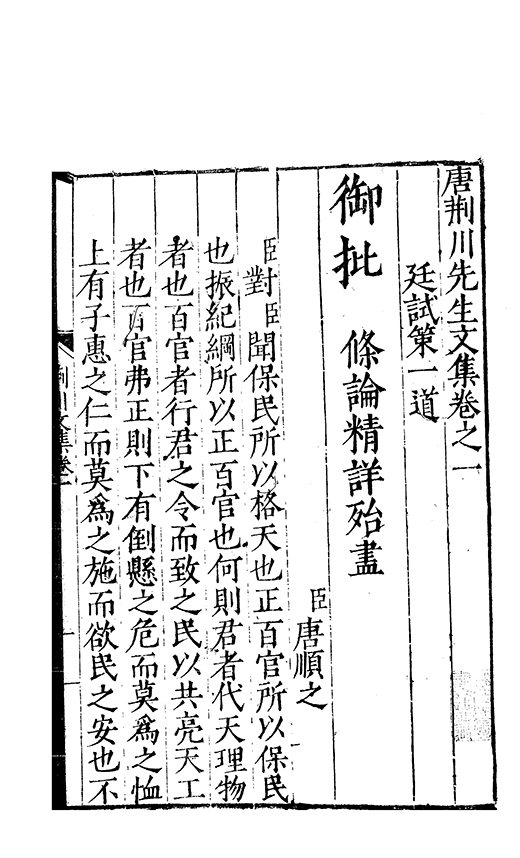 唐荆川先生文集卷之一
廷試策一道
御批　條論精詳殆盡
臣唐順之
臣對臣聞保民所以格天也正百官所以保民
也振紀綱所以正百官也何則君者代天理物
者也百官者行君之令而致之民以共亮天工
者也百官弗正則下有倒懸之危而莫爲之恤
上有子惠之仁而莫爲之施而欲民之安也不
荆川文集卷一
一